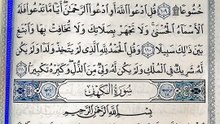 خُشُوعًا ۩ ١٠٩ قُلِ ادْعُوا اللَّهَ أَوِ ادْعُوا الرَّحْمَٰنَ أَيًّا مَا تَدْعُوا فَلَهُ
الْأَسْمَاءُ الْحُسْنَىٰ وَلَا تَجْهَرْ بِصَلَاتِكَ وَلَا تُخَافِتْ بِهَا وَابْتَغِ
بَيْنَ ذَٰلِكَ سَبِيلًا ١١٠ وَقُلِ الْحَمْدُ لِلَّهِ الَّذِي لَمْ يَتَّخِذْ وَلَدًا وَلَمْ يَكُنْ
لَهُ شَرِيكٌ فِي الْمُلْكِ وَلَمْ يَكُنْ لَهُ وَلِيٌّ مِنَ الذُّلِّ وَكَبِّرْهُ تَكْبِيرًا ١١١
سُورَةُ الْكَهْفِ
بِسْمِ اللَّهِ الرَّحْمَٰنِ الرَّحِيمِ